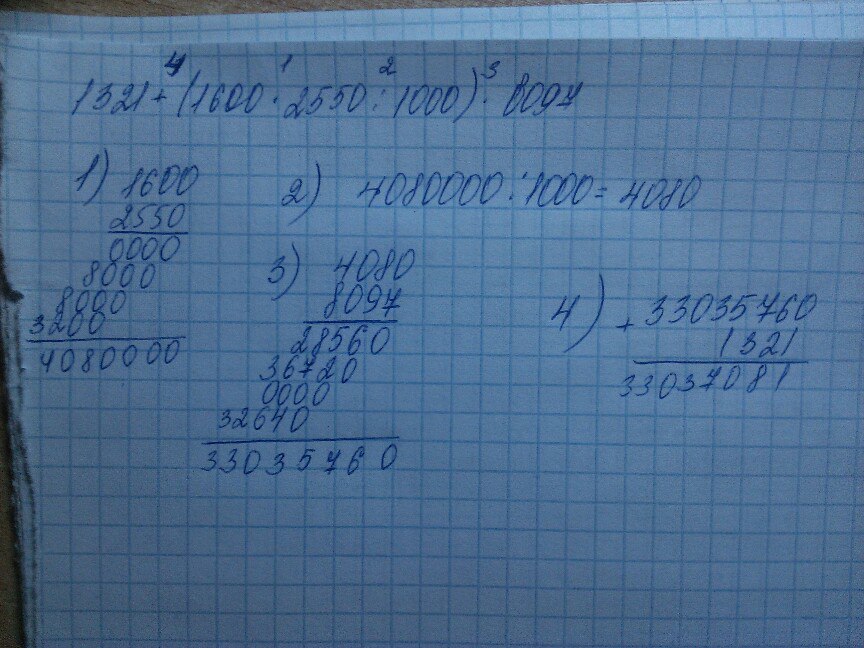 4 1 2 3
1321 + (1600 · 2550 : 1000) · 8097
1) 1600
2550
0000
8000
8000
3200
4080000
2) 4080000 : 1000 = 4080
3) 4080
8097
28560
36720
0000
32640
33035760
4) + 33035760
1321
33037081